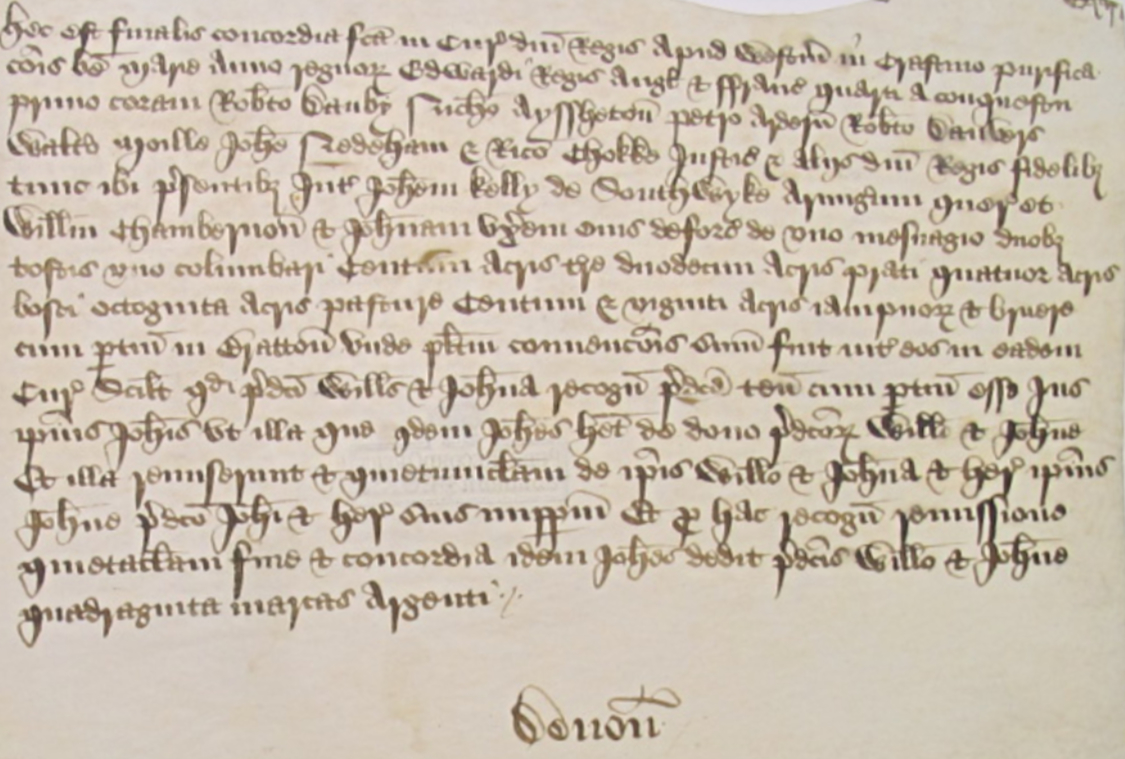 Hec est finalis concordia fca in Cur dni Regis Apud Westm in Crastino purifica
cois be Marie Anno regnor Edwardi Regis Angl & ffranc quarti a conquestu
primo coram Robto Danby Nicho Ayssheton petro Ardern Robto Danvers
Walto Moille Johe Nedeham & Rico Chokke Justic & Alijs dni Regis fidelibz
tunc ibi psentibz Int Johem Kelly de Southwyke Armigum quer et
Willm Chambernon & Johnam uxem eius deforc de uno mesuagio duobz
toftis uno columbari Centum Acris tre duodecim Acris prati quatuor Acris
bosci octoginta Acris pasture Centum & viginti Acris iampnor & bruere
cum ptin in Bratton unde plitm convencois sum fuit int eos in eadem
Cur Scilt qd pdci Wills & Johna recogn pdca ten cum ptin esse Jus
ipius Johis ut illa que idem Johes het de dono pdcor Willi & Johne
Et illa remiserunt & quietumclam de ipis Willo & Johna & her ipius
Johne pdco Johi & her suis imppm Et p hac recogn remissione
quietaclam fine & concordia idem Johes dedit pdcis Willo & Johne
quadraginta marcas Argenti
Devon